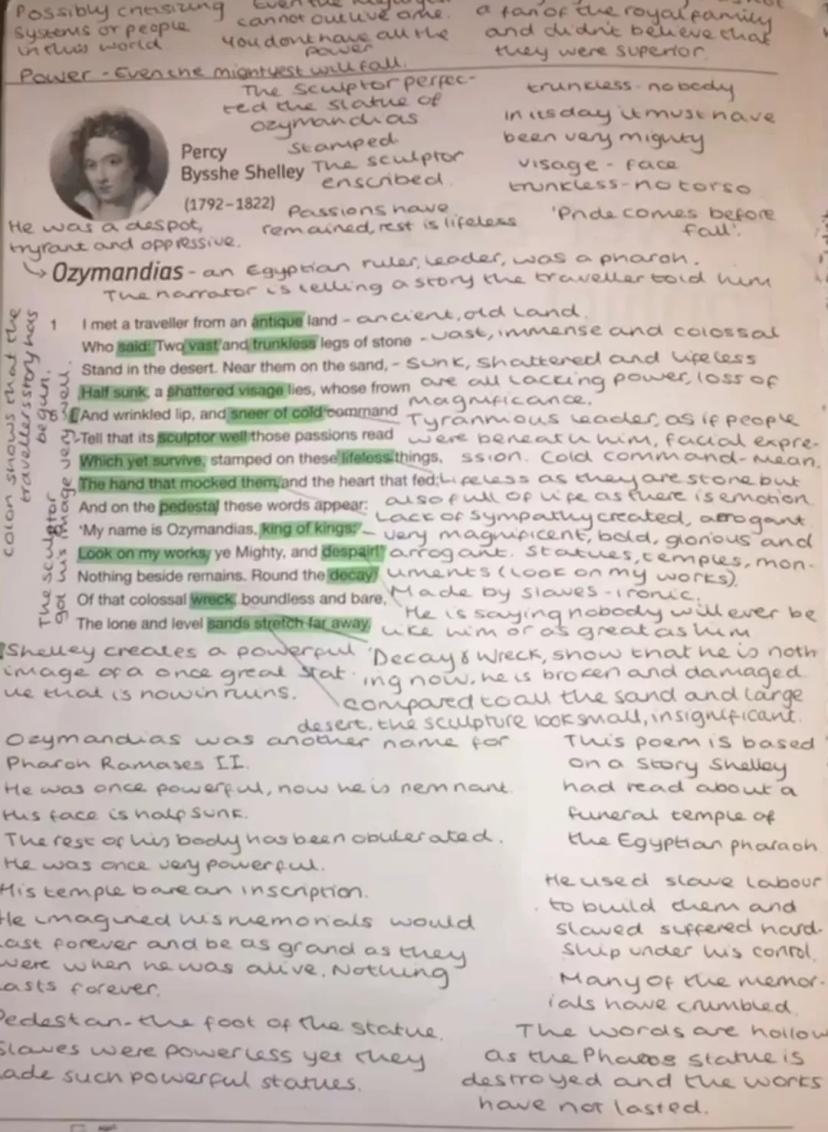 Possibly criticising
systems or people
in this world.
cannot outlive time.
You dont have all the
power
a fan of the royal family
and didn't believe that
they were superior.
Power - Even the mightyest will fall.
The sculptor perfec-
ted the statue of
Ozymandias
Stamped
The sculptor
enscribed.
Passions have
remained, rest is lifeless
trunkless - nobody
in its day it must have
been very mighty
visage - face
trunkless - no torso
'Pride comes before
fall'.
Percy
Bysshe Shelley
(1792–1822)
He was a despot,
tyrant and oppressive.
Ozymandias - an Egyptian ruler, leader, was a pharoh.
The narrator is telling a story the traveller told him
colon shows that the
travellers story has
begun.
The sculptor
got his image very well.
1 I met a traveller from an antique land - ancient, old land.
Who said: 'Two vast and trunkless legs of stone - vast, immense and colossal
Stand in the desert. Near them on the sand, - Sunk, shattered and lifeless
Half sunk, a shattered visage lies, whose frown are all lacking power, loss of
magnificance.
5 And wrinkled lip, and sneer of cold command Tyrannious leader, as if people
Tell that its sculptor well those passions read were beneath him, facial expre-
Which yet survive, stamped on these lifeless things, ssion. Cold command - mean.
The hand that mocked them, and the heart that fed; Lifeless as they are stone but
also full of life as there is emotion
And on the pedestal these words appear:
Lack of sympathy created, arrogant
'My name is Ozymandias, king of kings: - very magnificent, bold, glorious and
Look on my works, ye Mighty, and despair!' arrogant. Statues, temples, mon-
Nothing beside remains. Round the decay uments (look on my works).
Of that colossal wreck, boundless and bare, Made by slaves - ironic.
He is saying nobody will ever be
The lone and level sands stretch far away. like him or as great as him
Shelley creates a powerful
image of a once great stat
ue that is now in ruins.
'Decay & Wreck, show that he is noth
ing now, he is broken and damaged.
compared to all the sand and large
desert, the sculpture look small, insignificant.
Ozymandias was another name for
Pharoh Ramases II.
He was once powerful, now he is remnant.
His face is half sunk.
The rest of his body has been obulerated.
He was once very powerful.
His temple bare an inscription.
He imagined his memorials would
last forever and be as grand as they
were when he was alive. Nothing
lasts forever.
Pedestan - the foot of the statue.
Slaves were powerless yet they
made such powerful statues.
This poem is based
on a story Shelley
had read about a
funeral temple of
the Egyptian pharaoh
He used slave labour
to build them and
slaved suffered hard-
ship under his control.
Many of the memor-
ials have crumbled.
The words are hollow
as the Pharos statue is
destroyed and the works
have not lasted.